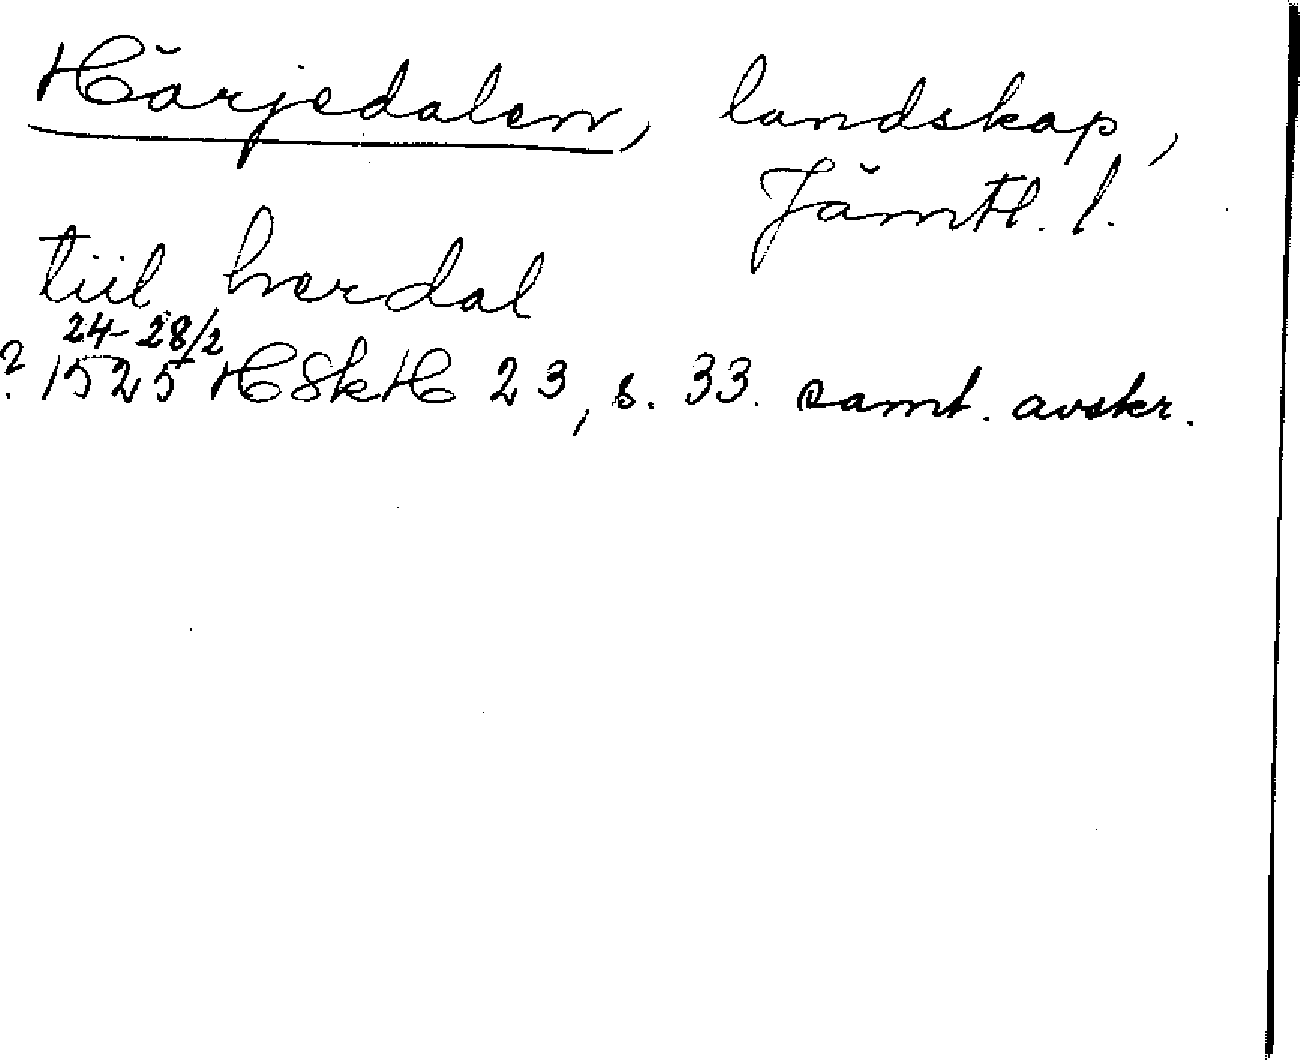 Härjedalen, landskap,
Jämtl. l.
tiil herdal
24-28/2
? 1525 HSkH 23, s. 33. samt. avskr.